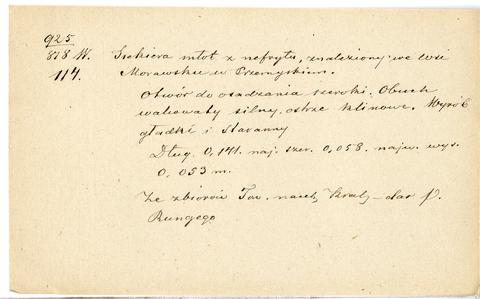 925.
878 W.
114.
Siekiera młot z nefrytu, znaleziony we wsi
Morawsku w Przemyskiem.
Otwór do osadzania szeroki. Obuch
walcowaty silny, ostrze klinowe. Wyrób
gładki i Staranny
Dług. 0,141. naj. szer. 0,058. najw. wys.
0,053 m.
Ze zbiorów Tow. nauk. Krak. – dar p.
Rungego